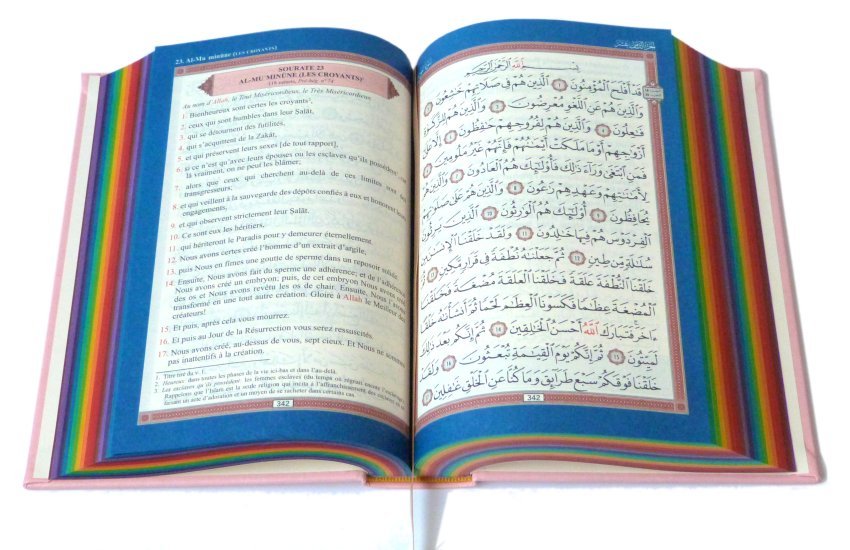 23. Al-Mu minûne (LES CROYANTS)
SOURATE 23
AL-MU MINÛNE (LES CROYANTS)¹
Au nom d'Allah, le Tout Miséricordieux, le Très Miséricordieux.
1. Bienheureux sont certes les croyants²,
2. ceux qui sont humbles dans leur Salât,
3. qui se détournent des futilités,
4. qui s'acquittent de la Zakât,
5. et qui préservent leurs sexes [de tout rapport],
6. si ce n'est qu'avec leurs épouses ou les esclaves qu'ils possèdent
là vraiment, on ne peut les blâmer;
7. alors que ceux qui cherchent au-delà de ces limites sont des
transgresseurs;
8. et qui veillent à la sauvegarde des dépôts confiés à eux et honorent leurs
engagements,
9. et qui observent strictement leur Salât.
10. Ce sont eux les héritiers,
11. qui hériteront le Paradis pour y demeurer éternellement.
12. Nous avons certes créé l'homme d'un extrait d'argile,
13. puis Nous en fîmes une goutte de sperme dans un reposoir solide.
14. Ensuite, Nous avons fait du sperme une adhérence; et de l'adhérence
Nous avons créé un embryon; puis, de cet embryon Nous avons créé
des os et Nous avons revêtu les os de chair. Ensuite, Nous l'avons
transformé en une tout autre création. Gloire à Allah le Meilleur des
créateurs!
15. Et puis, après cela vous mourrez.
16. Et puis au Jour de la Résurrection vous serez ressuscités.
17. Nous avons créé, au-dessus de vous, sept cieux. Et Nous ne sommes
pas inattentifs à la création.
1 Titre tiré du v. 1.
2 Heureux: dans toutes les phases de la vie ici-bas et dans l'au-delà.
3 Les esclaves qu'ils possèdent: les femmes esclaves (du temps où régnait encore l'esclavage).
Rappelons que l'Islam est la seule religion qui incita à l'affranchissement des esclaves, en en
faisant un acte d'adoration et un moyen de se racheter dans certains cas.
342
بِسْمِ اللَّهِ الرَّحْمَٰنِ الرَّحِيمِ
قَدْ أَفْلَحَ الْمُؤْمِنُونَ ١ الَّذِينَ هُمْ فِي صَلَاتِهِمْ خَاشِعُونَ ٢
وَالَّذِينَ هُمْ عَنِ اللَّغْوِ مُعْرِضُونَ ٣ وَالَّذِينَ هُمْ لِلزَّكَوٰةِ
فَاعِلُونَ ٤ وَالَّذِينَ هُمْ لِفُرُوجِهِمْ حَافِظُونَ ٥ إِلَّا عَلَىٰ
أَزْوَاجِهِمْ أَوْ مَا مَلَكَتْ أَيْمَانُهُمْ فَإِنَّهُمْ غَيْرُ مَلُومِينَ ٦
فَمَنِ ابْتَغَىٰ وَرَاءَ ذَٰلِكَ فَأُولَٰئِكَ هُمُ الْعَادُونَ ٧ وَالَّذِينَ هُمْ
لِأَمَانَاتِهِمْ وَعَهْدِهِمْ رَاعُونَ ٨ وَالَّذِينَ هُمْ عَلَىٰ صَلَوَاتِهِمْ
يُحَافِظُونَ ٩ أُولَٰئِكَ هُمُ الْوَارِثُونَ ١٠ الَّذِينَ يَرِثُونَ
الْفِرْدَوْسَ هُمْ فِيهَا خَالِدُونَ ١١ وَلَقَدْ خَلَقْنَا الْإِنْسَانَ مِنْ
سُلَالَةٍ مِنْ طِينٍ ١٢ ثُمَّ جَعَلْنَاهُ نُطْفَةً فِي قَرَارٍ مَكِينٍ ١٣ ثُمَّ
خَلَقْنَا النُّطْفَةَ عَلَقَةً فَخَلَقْنَا الْعَلَقَةَ مُضْغَةً فَخَلَقْنَا
الْمُضْغَةَ عِظَامًا فَكَسَوْنَا الْعِظَامَ لَحْمًا ثُمَّ أَنْشَأْنَاهُ خَلْقًا
آخَرَ فَتَبَارَكَ اللَّهُ أَحْسَنُ الْخَالِقِينَ ١٤ ثُمَّ إِنَّكُمْ بَعْدَ ذَٰلِكَ
لَمَيِّتُونَ ١٥ ثُمَّ إِنَّكُمْ يَوْمَ الْقِيَامَةِ تُبْعَثُونَ ١٦ وَلَقَدْ
خَلَقْنَا فَوْقَكُمْ سَبْعَ طَرَائِقَ وَمَا كُنَّا عَنِ الْخَلْقِ غَافِلِينَ ١٧
342